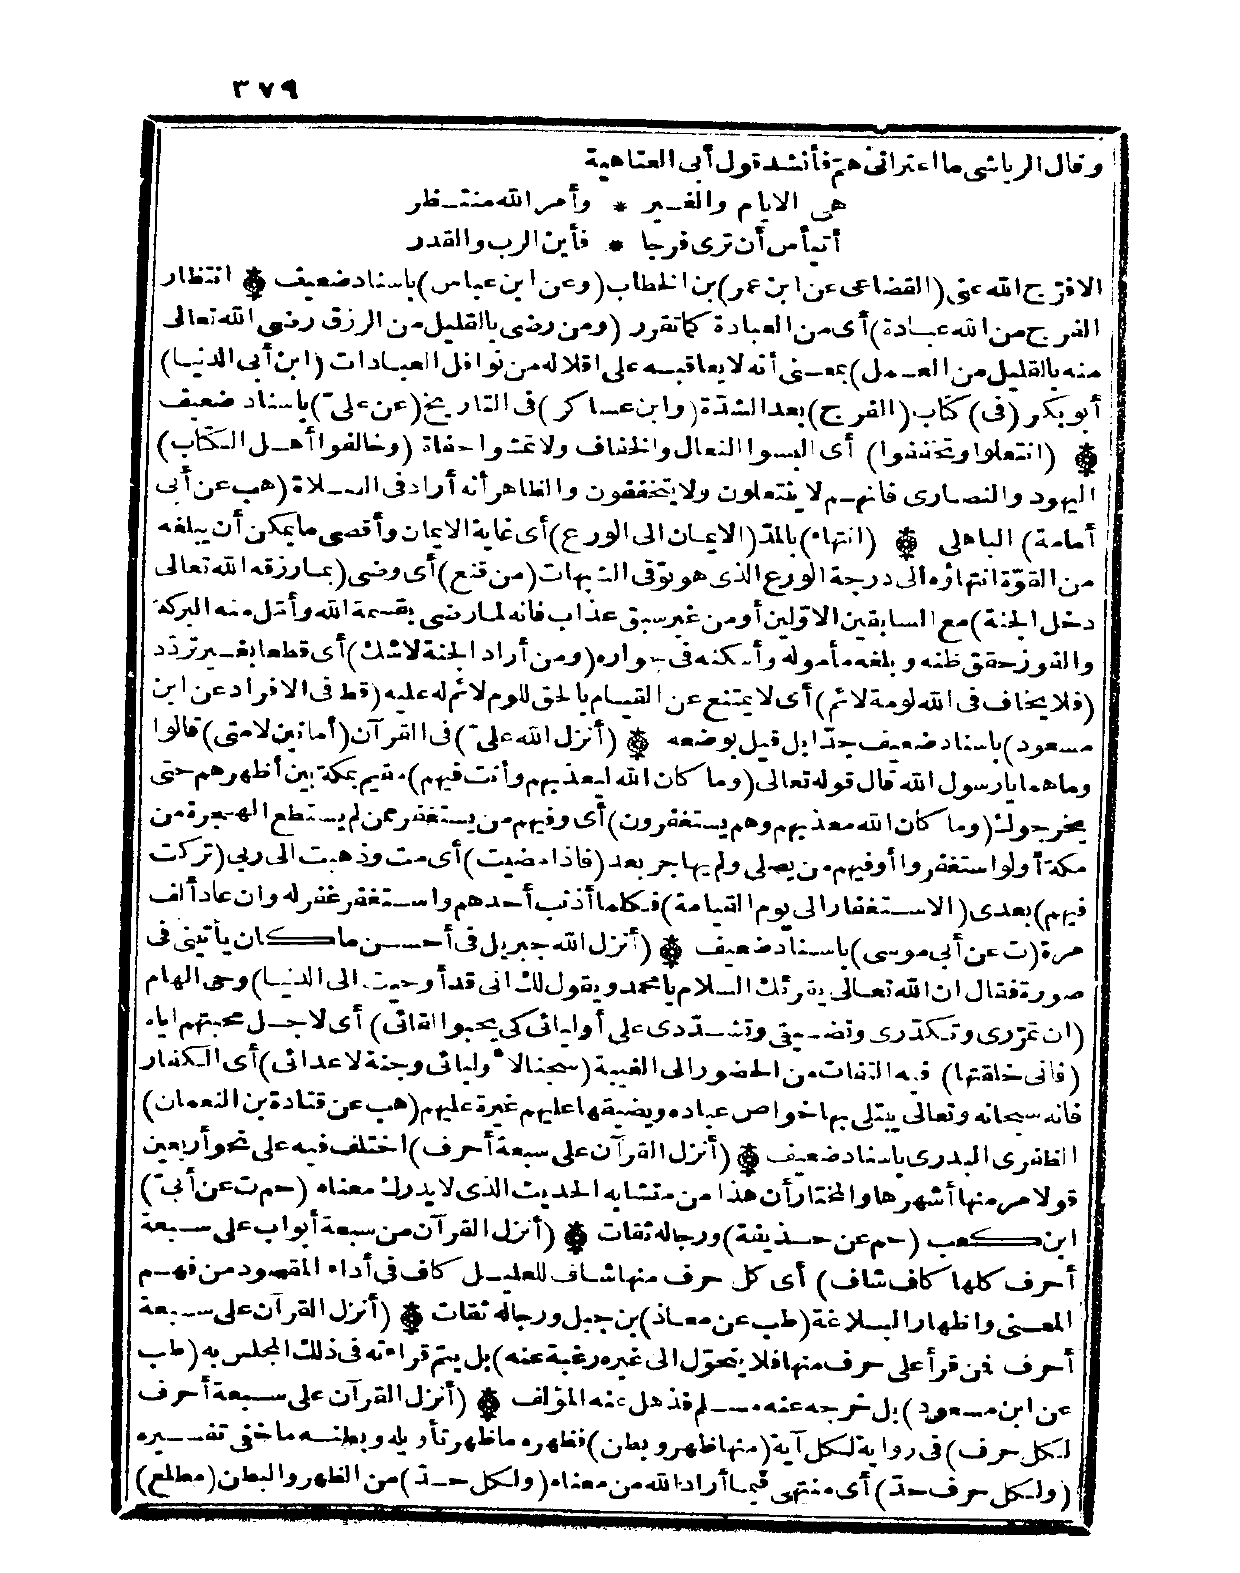 ٣٧٩
وقال الرياشى ما اعترانى هم فأنشد قول أبى العتاهية
هى الايام والغـير * وأمر الله منتـظر
أتيأس أن ترى فرجا * فأين الرب والقدر
الافرج الله عنى (القضاعى عن ابن عمر) بن الخطاب (وعن ابن عباس) باسناد ضعيف ۞ انتظار
الفرج من الله عبادة) أى من العبادة كما تقرر (ومن رضى بالقليل من الرزق رضى الله تعالى
منه بالقليل من العـمل) بمعـنى أنه لا يعاقبـه على اقلاله من نوافل العبادات (ابن أبى الدنيا)
أبو بكر (فى) كتاب (الفرج) بعد الشدّة (وابن عساكر) فى التاريخ (عن علىّ) باسناد ضعيف
۞ (انتعلوا وتخففوا) أى البسوا النعال والخفاف ولا تمشوا حفاة (وخالفوا أهـل الكتاب)
اليهود والنصارى فانهـم لا ينتعلون ولا يتخففون والظاهر أنه أراد فى الصـلاة (هب عن أبى
أمامة) الباهلى ۞ (انتهاء) بالمدّ (الايمـان الى الورع) أى غاية الايمان وأقصى ما يمكن أن يبلغه
من القوّة انتهاؤه الى درجة الورع الذى هو توقى الشبهات (من قنع) أى رضى (بما رزقه الله تعالى
دخل الجنة) مع السابقين الاوّلين أو من غير سبق عذاب فانه لما رضى بقسمة الله وأمّل منه البركة
والفوز حقق ظنه وبلغه مأموله وأسكنه فى جواره (ومن أراد الجنة لاشك) أى قطعا بغـير تردّد
(فلا يخاف فى الله لومة لائم) أى لا يمتنع عن القيـام بالحق للوم لائم له عليه (قط فى الافراد عن ابن
مسعود) باسناد ضعيف جدّا بل قيل بوضعه ۞ (أنزل الله علىّ) فى القرآن (أمانين لامتى) قالوا
وما هما يا رسول الله قال قوله تعالى (وما كان الله ليعذبهم وأنت فيهم) مقيم بمكة بين أظهرهم حتى
يخرجوك (وما كان الله معذبهم وهم يستغفرون) أى وفيهم من يستغفر ممن لم يستطع الهـجرة من
مكة أولو استغفروا أو فيهم من يصلى ولم يهاجر بعد (فاذا مضيت) أى مت وذهبت الى ربى (تركت
فيهم) بعدى (الاستغفار الى يوم القيامة) فكلما أذنب أحدهم واسـتغفر غفر له وان عاد ألف
مرة (ت عن أبى موسى) باسناد ضعيف ۞ (أنزل الله جبريل فى أحسـن ما كان يأتينى فى
صورة فقال ان الله تعالى يقرئك السلام يا محمد ويقول لك انى قد أوحيت الى الدنيا) وحى الهام
(ان تمرّرى وتـكدّرى وتضـيقى وتشـدّدى على أوليائى كى يحبوا لقائى) أى لاجـل محبتهم اياه
(فانى خلقتها) فيـه التفات من الحضور الى الغيبة (سجنا لاوليائى وجنة لاعدائى) أى الكفار
فانه سبحانه وتعالى يبتلى بها خواص عباده ويضيقها عليهم غيرة عليهم (هب عن قتادة بن النعمان)
الظفرى البدرى باسناد ضعيف ۞ (أنزل القرآن على سبعة أحرف) اختلف فيه على نحو أربعين
قولا مر منها أشهرها والمختار أن هذا من متشابه الحديث الذى لا يدرك معناه (حم ت عن أبىّ)
ابن كعب (حم عن حـذيفة) ورجاله ثقات ۞ (أنزل القرآن من سبعة أبواب على سـبعة
أحرف كلها كاف شاف) أى كل حرف منها شاف للعليـل كاف فى أداء المقصود من فهـم
المعـنى واظهار البـلاغة (طب عن معـاذ) بن جبل ورجاله ثقات ۞ (أنزل القرآن على سـبعة
أحرف فمن قرأ على حرف منها فلا يتحوّل الى غيره رغبة عنه) بل يتم قراءته فى ذلك المجلس به (طب
عن ابن مسعود) بل خرجه عنه مسـلم فذهل عنه المؤلف ۞ (أنزل القرآن على سـبعة أحرف
لـكل حرف) فى رواية لـكل آية (منها ظهر وبطن) فظهره ما ظهر تأويله وبطنـه ما خفى تفسـيره
(ولـكل حرف حدّ) أى منتهى فيما أراد الله من معناه (ولـكل حـدّ) من الظهر والبطن (مطلع)